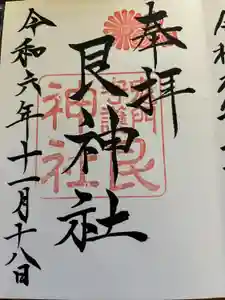 奉拝
艮神社
令和六年十一月十八日
艮
神社